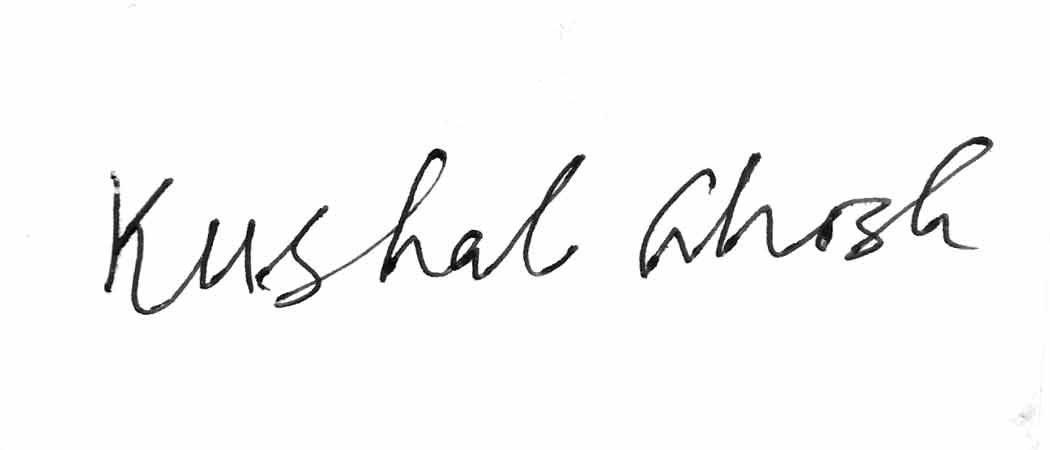 Kushal Ghosh